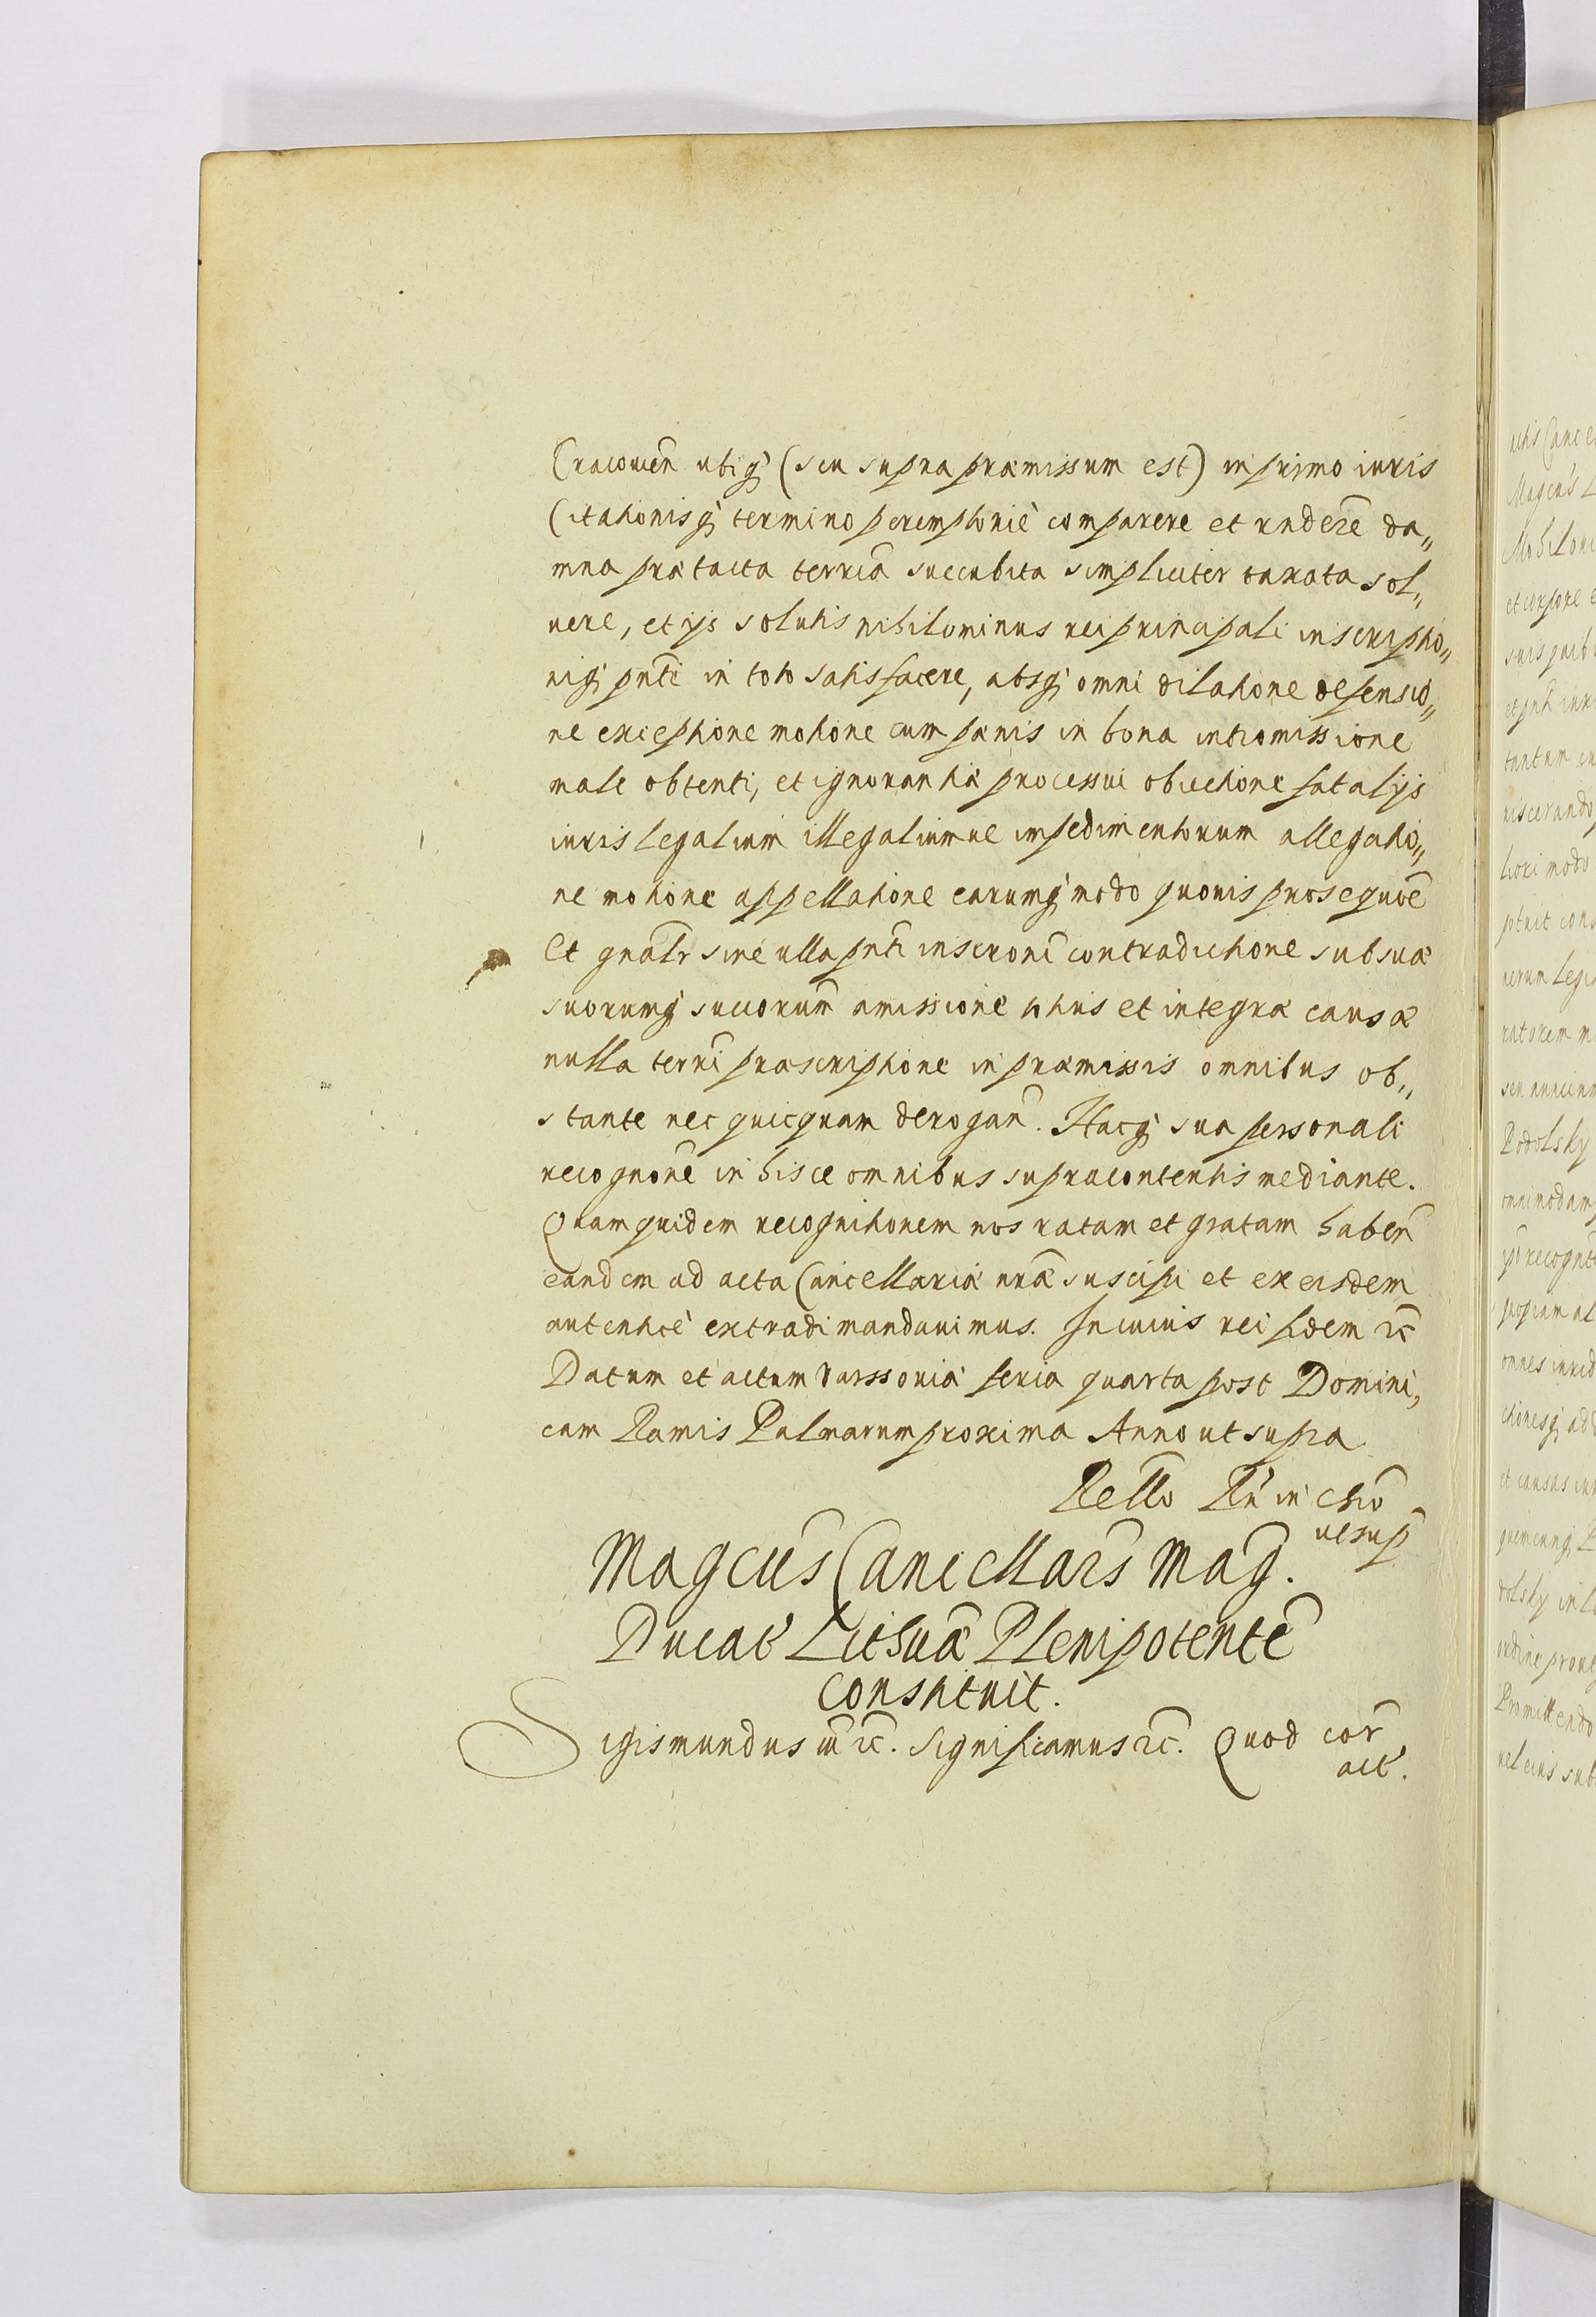 Cracouien utiq (seu supra præmissum est) in primo iuris
Citationisq termino peremptoriè comparere et rndere da„
mna prætacta terria succubita simpliciter taxata sol„
uere, et ijs solutis nihilominus rei principali inscriptio„
niq pnti in toto satisfacere, absq omni dilatione defensio„
ne exceptione motione cum pœnis in bona intromissione
male obtenti, et ignorantiæ processui obiectione fatalijs
iuris legalium illegaliumue impedimentorum allegatio„
ne motione appellatione earumq modo quouis prosequõe
Et gnalr sine ulla pnti inscroni contradictione sub suæ
suorumq succorum amissione totius et integræ causæ
nulla terri præscriptione in præmissis omnibus ob„
stante nec quicquam derogan. Hacq sua personali
recognone in hisce omnibus supracontentis mediante.
Quam quidem recognitionem nos ratam et gratam haben
eandem ad acta Cancellariæ nræ suscipi et ex eisdem
autenticè extradi mandauimus. In cuius rei fidem &c
Datum et actum Varssouiæ feria quarta post Domini„
cam Ramis Palmarum proxima Anno ut supra
Rello Rn in chõ
ut sup
Magcus Cancellars Mag.
Ducat Lithuæ Plenipotente
Constituit.
Sigismundus iii &c. Significamus &c. Quod cor
act.
utis Cance
Magcus L
et corpore e
suis quib
tantum
niscerando
liori modo
ptuit cons
uerum legi
ratorem
seu nunciu
Podolsky
omnimodam
recognit
omnes
et causas
dolsky in L
ordine prout
Promittendo
uel eius sub